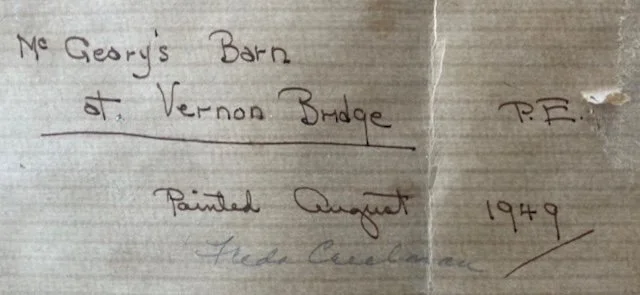 Mc Geary's Barn
at. Vernon Bridge P.E.
Painted August 1949
Freda Creelman